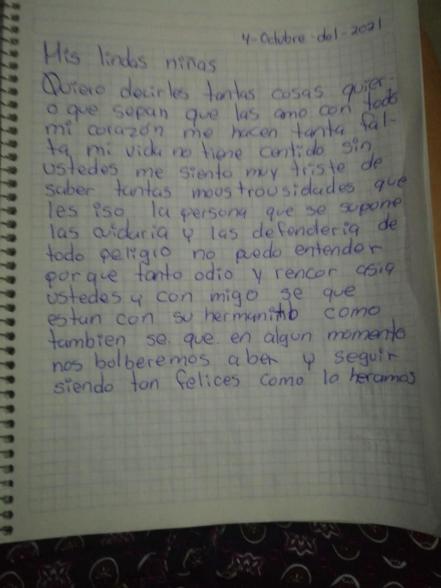 4-Octubre-del-2021
Mis lindas niñas
Quiero decirles tantas cosas quier-
o que sepan que las amo con todo
mi corazón me hacen tanta fal-
ta, mi vida no tiene centido sin
ustedes me siento muy triste de
saber tantas moustrousidades que
les iso la persona que se supone
las cuidaria y las defenderia de
todo peligro no puedo entender
porque tanto odio y rencor asia
ustedes y con migo se que
estan con su hermanito como
tambien se que en algun momento
nos bolberemos aber y seguir
siendo tan felices como lo heramos